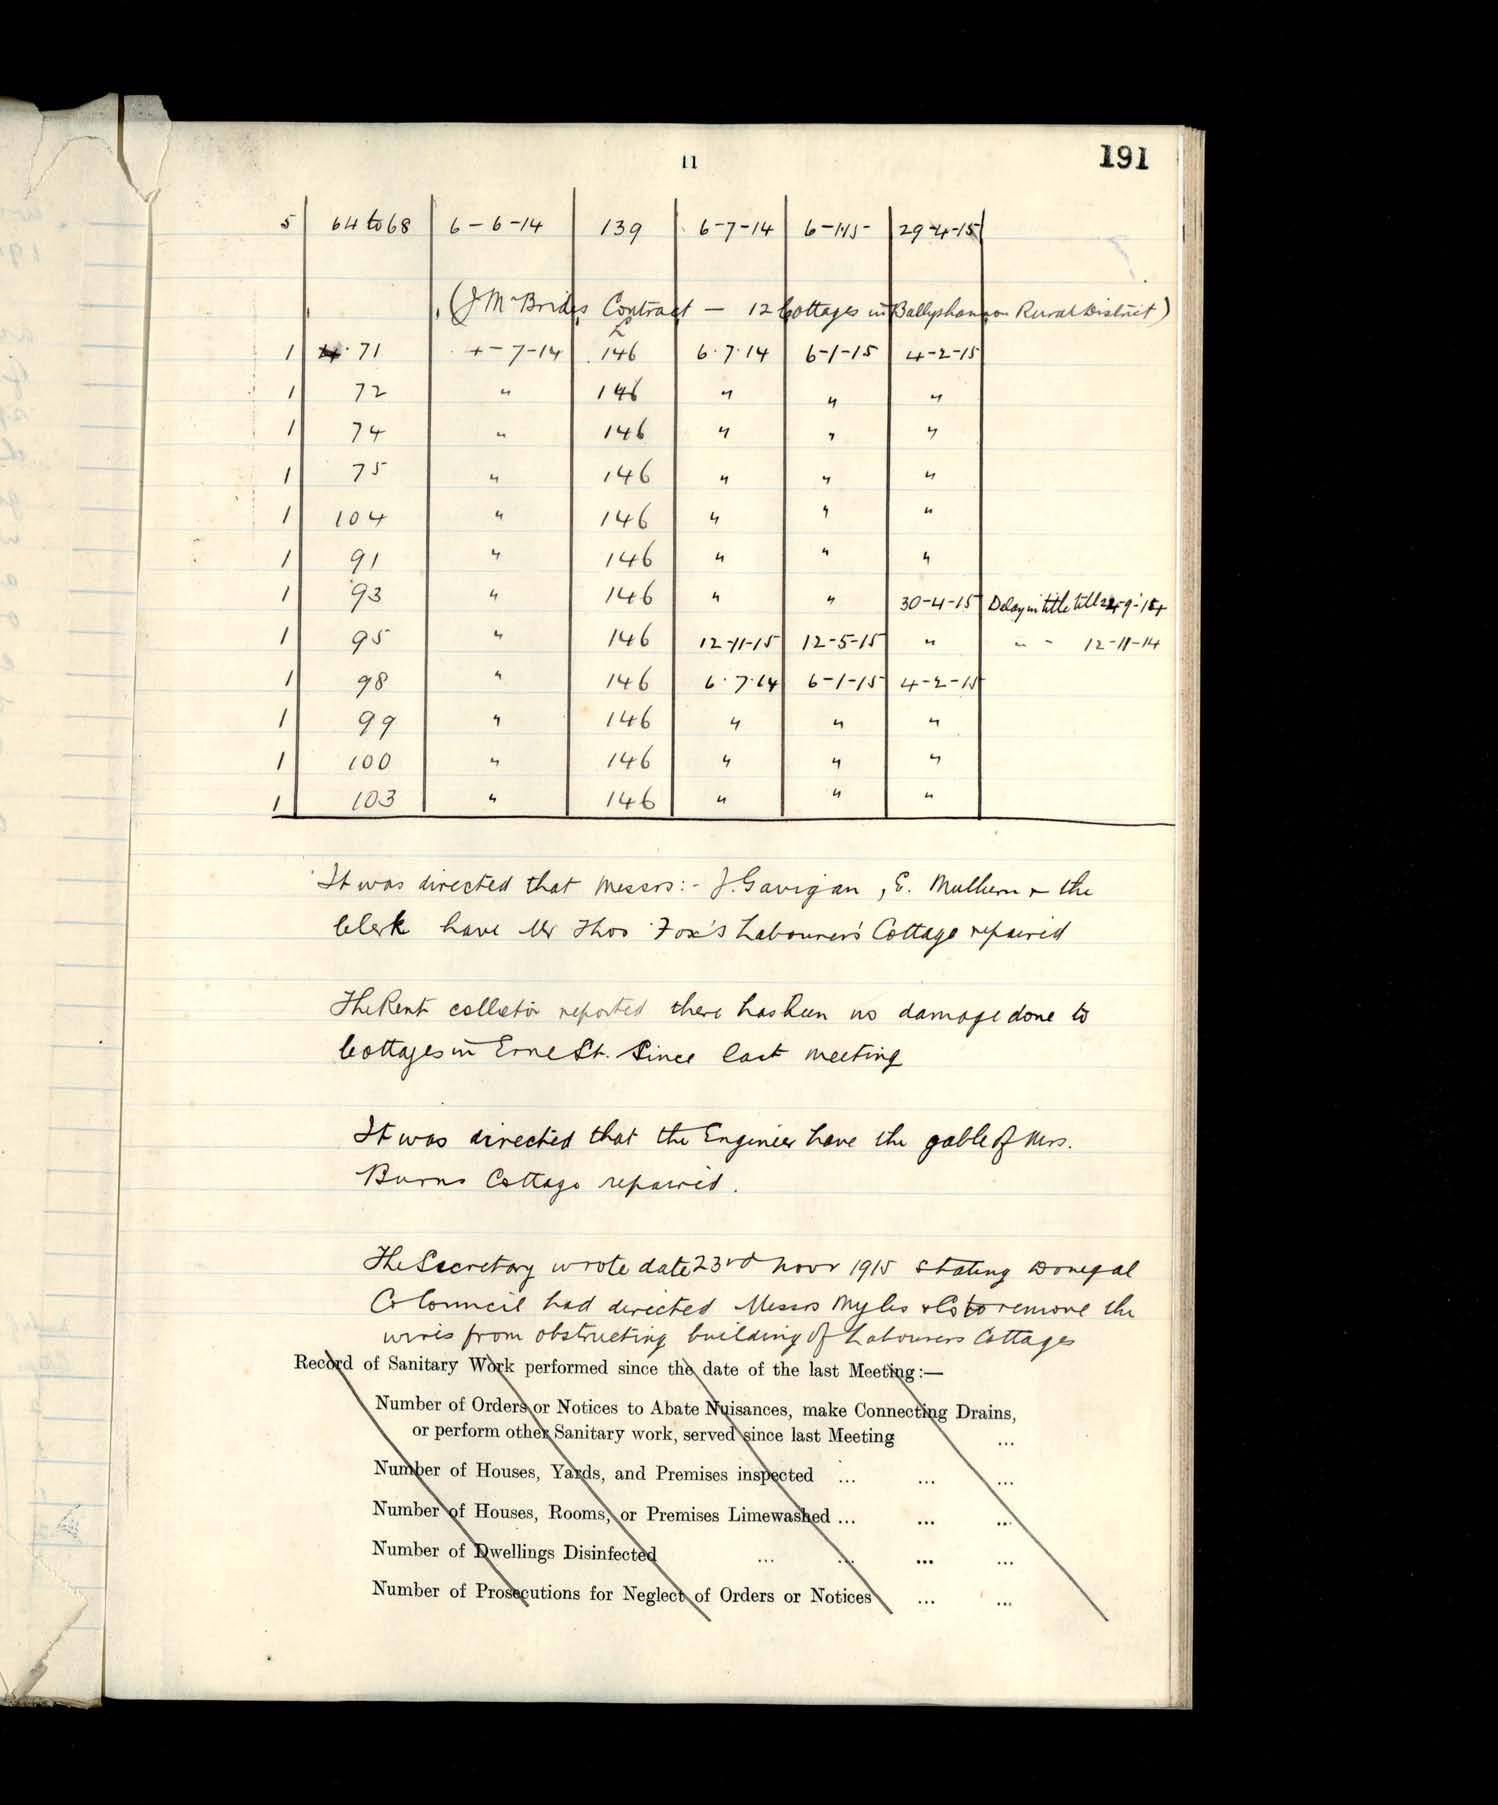 11
191
5 64 to 68 6-6-14 139 6-7-14 6-1-15 29-4-15
(J McBrides Contract — 12 Cottages in Ballyshannon Rural District)
£
1 71 4-7-14 146 6.7.14 6-1-15 4-2-15
1 72 " 146 " " "
1 74 " 146 " " "
1 75 " 146 " " "
1 104 " 146 " " "
1 91 " 146 " " "
1 93 " 146 " " 30-4-15 Delay in title till 24-9-14
1 95 " 146 12-11-15 12-5-15 " " " 12-11-14
1 98 " 146 6.7.14 6-1-15 4-2-15
1 99 " 146 " " "
1 100 " 146 " " "
1 103 " 146 " " "
It was directed that Messrs:- J. Gavigan, E. Mulhern & the
Clerk have Mr Thos Fox's Labourer's Cottage repaired
The Rent collector reported there has been no damage done to
Cottages in Erne St. Since last meeting
It was directed that the Engineer have the gable of Mrs.
Burns Cottage repaired.
The Secretary wrote date 23rd Novr 1915 stating Donegal
Co Council had directed Messrs Myles & Co to remove the
wires from obstructing building of Labourers Cottages
Record of Sanitary Work performed since the date of the last Meeting:—
Number of Orders or Notices to Abate Nuisances, make Connecting Drains,
or perform other Sanitary work, served since last Meeting ...
Number of Houses, Yards, and Premises inspected ... ... ...
Number of Houses, Rooms, or Premises Limewashed ... ... ...
Number of Dwellings Disinfected ... ... ... ...
Number of Prosecutions for Neglect of Orders or Notices ... ...